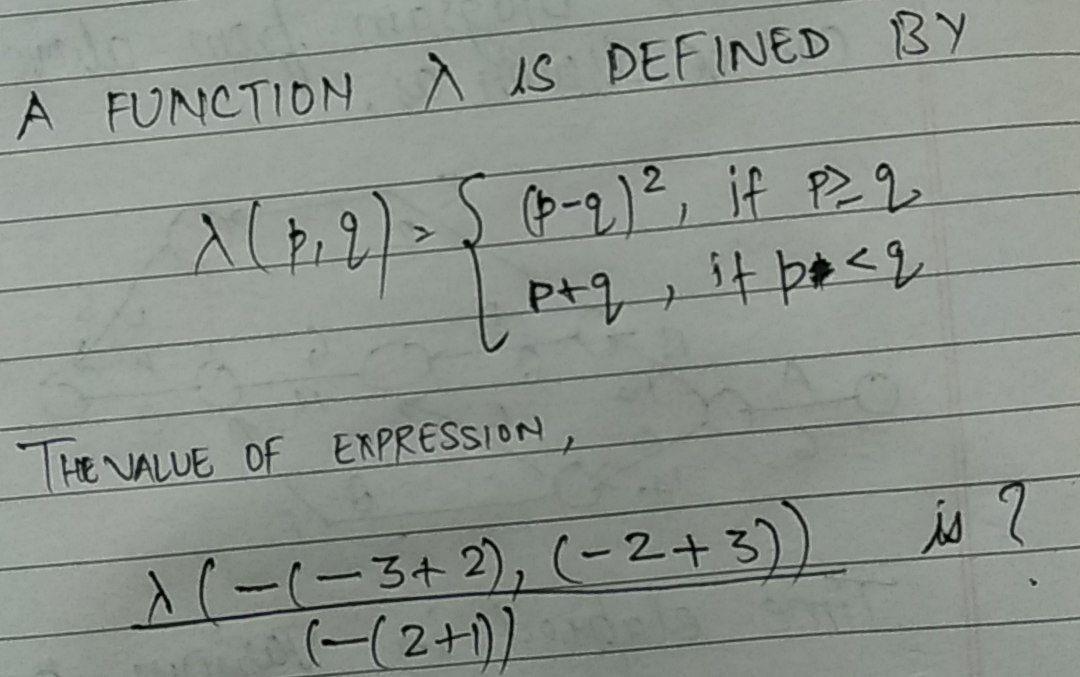 A FUNCTION λ IS DEFINED BY
λ(p,q) = { (p-q)², if p≥q
p+q, if p<q
THE VALUE OF EXPRESSION,
λ(-(-3+2), (-2+3)) is ?
(-(2+1))